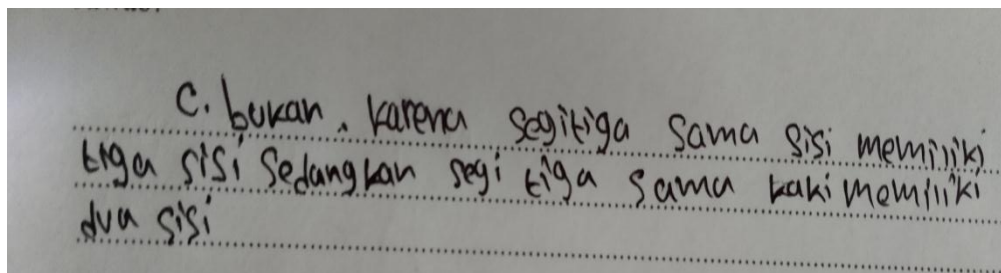 c. bukan, karena segitiga sama sisi memiliki
tiga sisi sedangkan segi tiga sama kaki memiliki
dua sisi